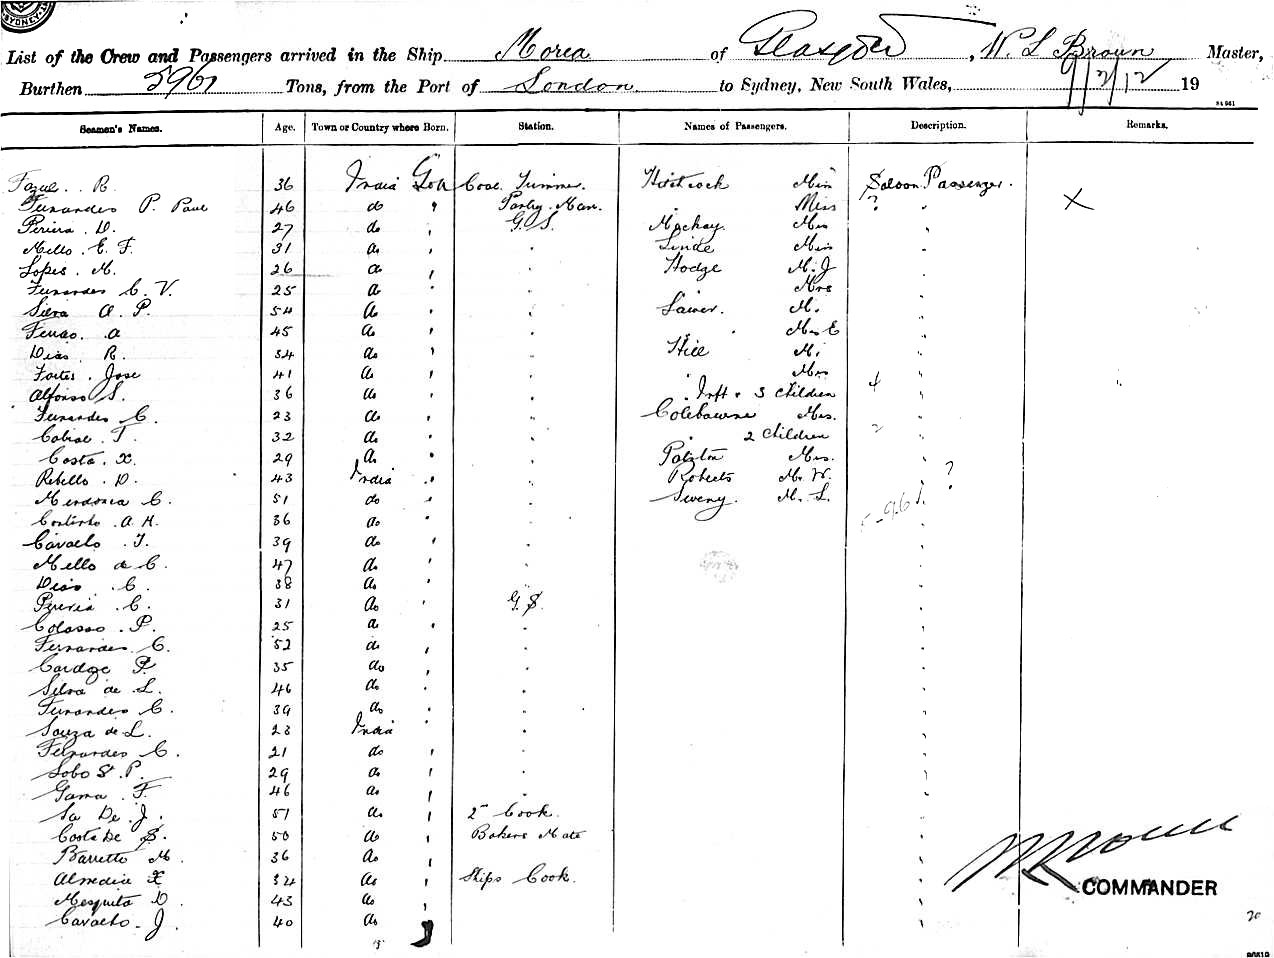 SYDNEY
List of the Crew and Passengers arrived in the Ship Morea of Glasgow, W. L Brown Master,
Burthen 5961 Tons, from the Port of London to Sydney, New South Wales, 9/2/12 19
Seamen's Names. Age. Town or Country where Born. Station. Names of Passengers. Description. Remarks.
Fazul. R. 36 India Goa Coal Trimmer. Hitchcock Miss Saloon Passenger.
Fernandes P. Paul 46 do " Pantry Man. " Miss ? " X
Periera D. 27 do " G. S. Mackay. Mrs "
Mello. E. F. 31 do " " Linde Miss "
Lopes. M. 26 do " " Hodge M. J "
Fernandes C. V. 25 do " " Mrs "
Silva A. P. 54 do " " Sawer. M. "
Ferrao. A 45 do " " " Mrs E "
Dias. R. 34 do " " Hill M. "
Fortes. Jose 41 do " " Mrs "
Alfonso S. 36 do " " " Inft & 3 children 4 "
Fernandes C. 23 do " " Colebourne Mrs. "
Cabral. T. 32 do " " " 2 Children 2 "
Costa. X. 29 do " " Mrs. "
Rebello. D. 43 India " " Roberts Mr W. " ?
Mendonca C. 51 do " " Sweny. M. L. "
Coutinho. A. M. 36 do " "
Cavalho. J. 39 do " " "
Mello de C. 47 do " " "
Dias. C. 38 do " " "
Pereria. C. 31 do " G. S. "
Colasso. P. 25 do " " "
Fernandes. C. 52 do " " "
Cardoze P. 35 do " " "
Silva de L. 46 do " " "
Fernandes C. 39 do " " "
Souza de L. 23 India " " "
Fernandes C. 21 do " " "
Lobo St. P. 29 do " " "
Gama. F. 46 do " " "
Sa De. J. 51 do " 2nd Cook. "
Costa De S. 50 do " Bakers Mate "
Barretto M. 36 do "
Almedia X 34 do " Ships Cook. "
COMMANDER
Mesquita D. 43 do " "
Cavalho. J. 40 do "
20